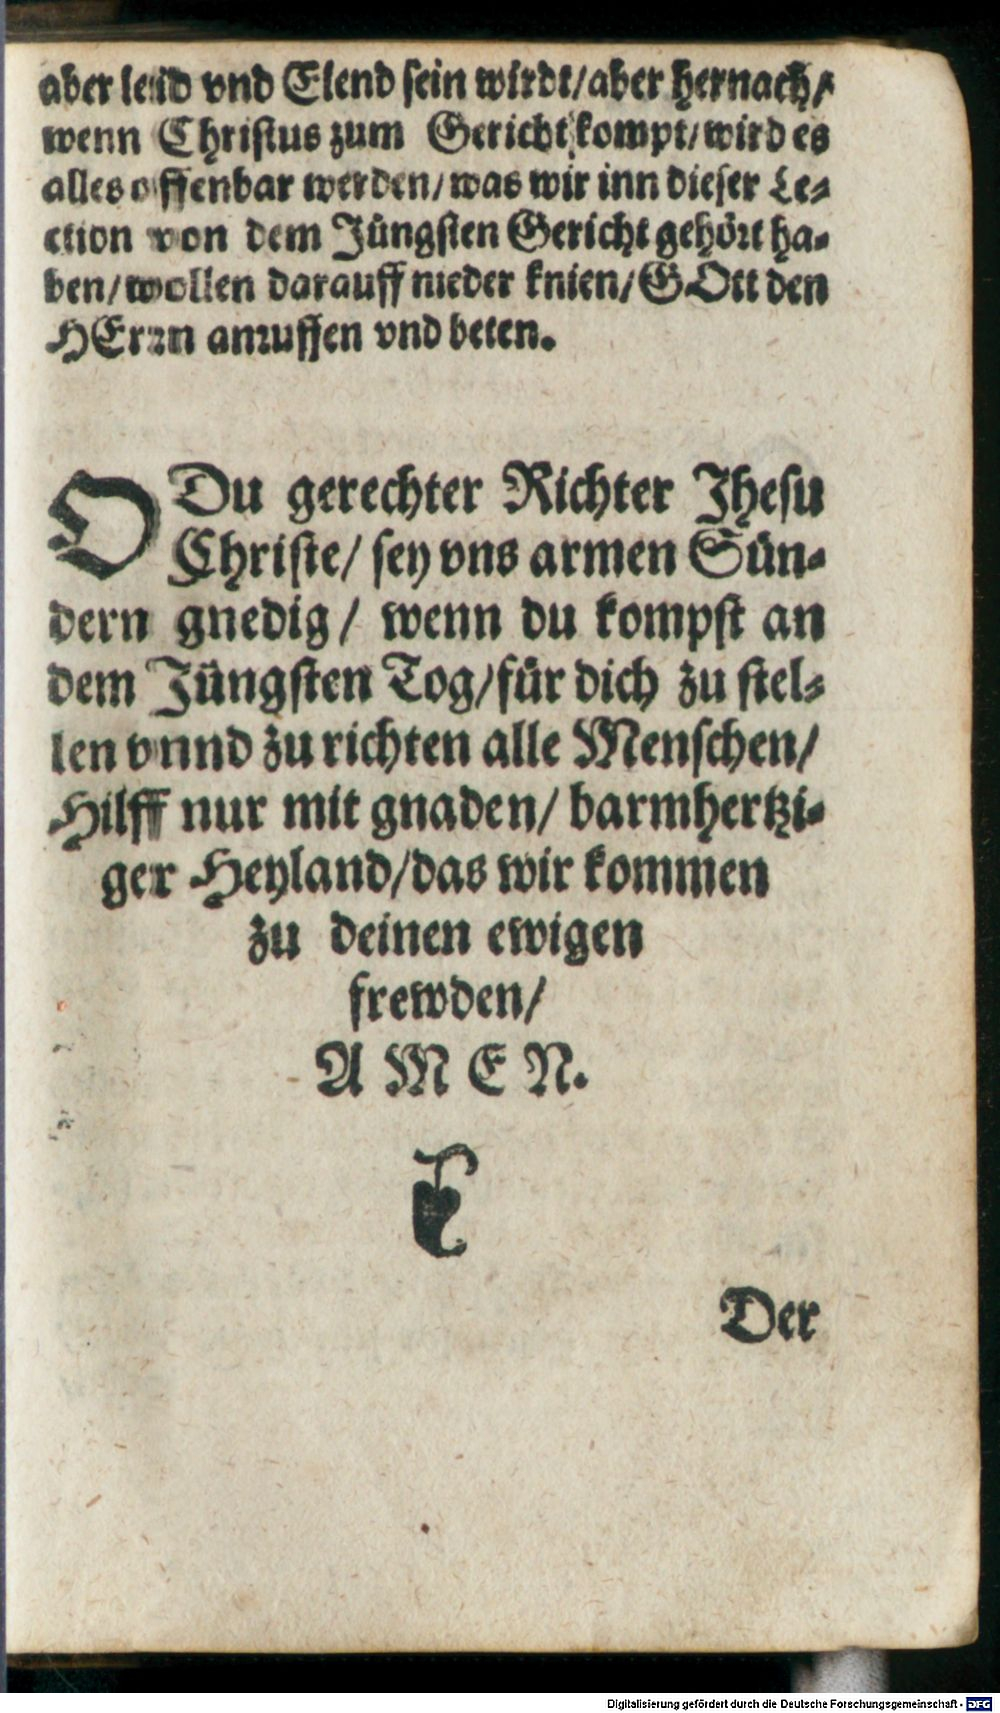 aber leid vnd Elend sein wirdt/aber hernach/
wenn Christus zum Gericht kompt/wird es
alles offenbar werden/was wir inn dieser Le⸗
ction von dem Jüngsten Gericht gehört ha⸗
ben/wollen darauff nieder knien/GOtt den
HErrn anruffen vnd beten.
O Du gerechter Richter Jhesu
Christe/ sey vns armen Sün⸗
dern gnedig/ wenn du kompst an
dem Jüngsten Tog/für dich zu stel⸗
len vnnd zu richten alle Menschen/
Hilff nur mit gnaden/ barmhertzi⸗
ger Heyland/das wir kommen
zu deinen ewigen
frewden/
A M E N.
Der
Digitalisierung gefördert durch die Deutsche Forschungsgemeinschaft - DFG